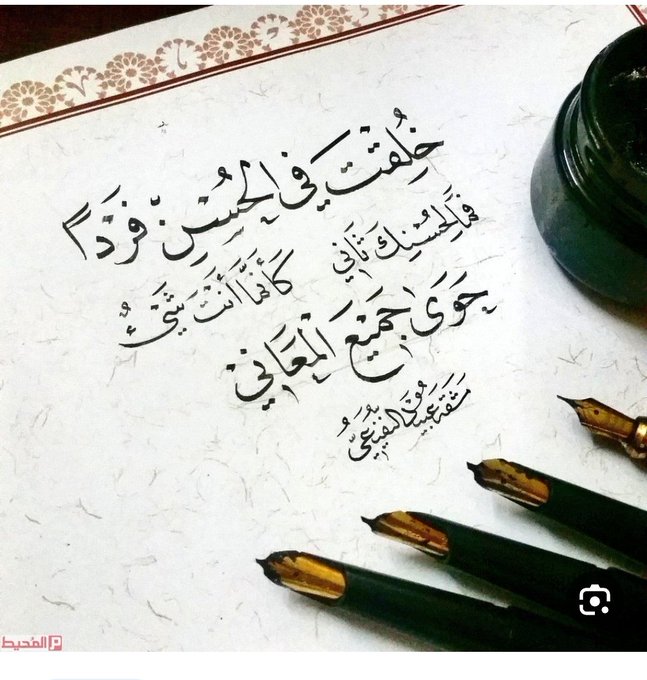 خُلِقتَ في الحُسنِ فَرْداً
فمَا لِحُسْنِكَ ثَاني
كَأنَّمَا أنتَ شَيْءٌ
حَوَى جَميْعَ الْمَعَاني
مشقه عبيد
المحيط